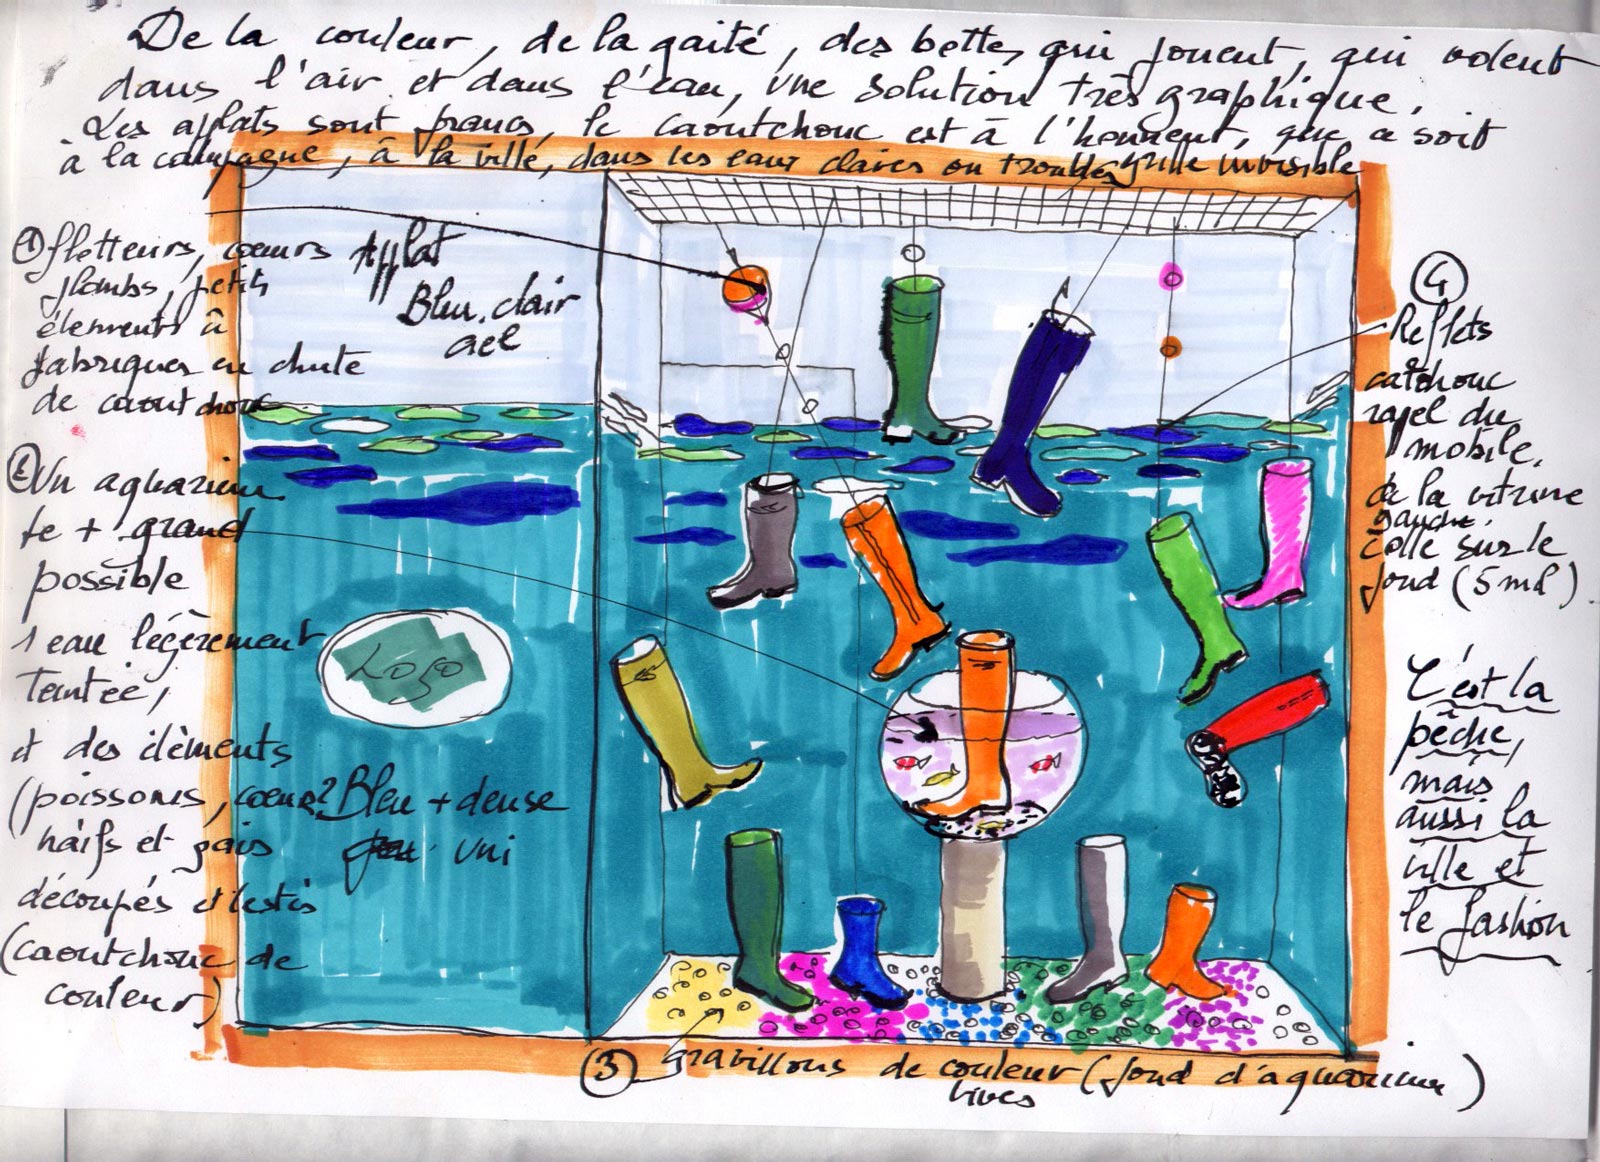 De la couleur, de la gaité, des bottes qui jouent, qui volent
dans l'air et dans l'eau, une solution très graphique.
Les applats sont francs, le caoutchouc est à l'honneur, que ce soit
à la campagne, à la ville, dans les eaux claires ou troubles
grille invisible
1 flotteurs, coeurs
plombs, petits
élements à
fabriquer en chute
de caoutchouc
Applat
Bleu clair
2 Un aquarium
le + grand
possible
1 eau légèrement
Teintée,
et des élèments
(poissons, coeurs
naïfs et gais
découpés et lestés
(caoutchouc de
couleur)
Logo
Bleu + dense
uni
3 gravillons de couleur (fond d'aquarium)
vives
4
Reflets
catchouc
rapel du
mobile,
de la vitrine
gauche.
Collé sur le
fond (5 ml)
C'est la
pêche,
mais
aussi la
ville et
le fashion